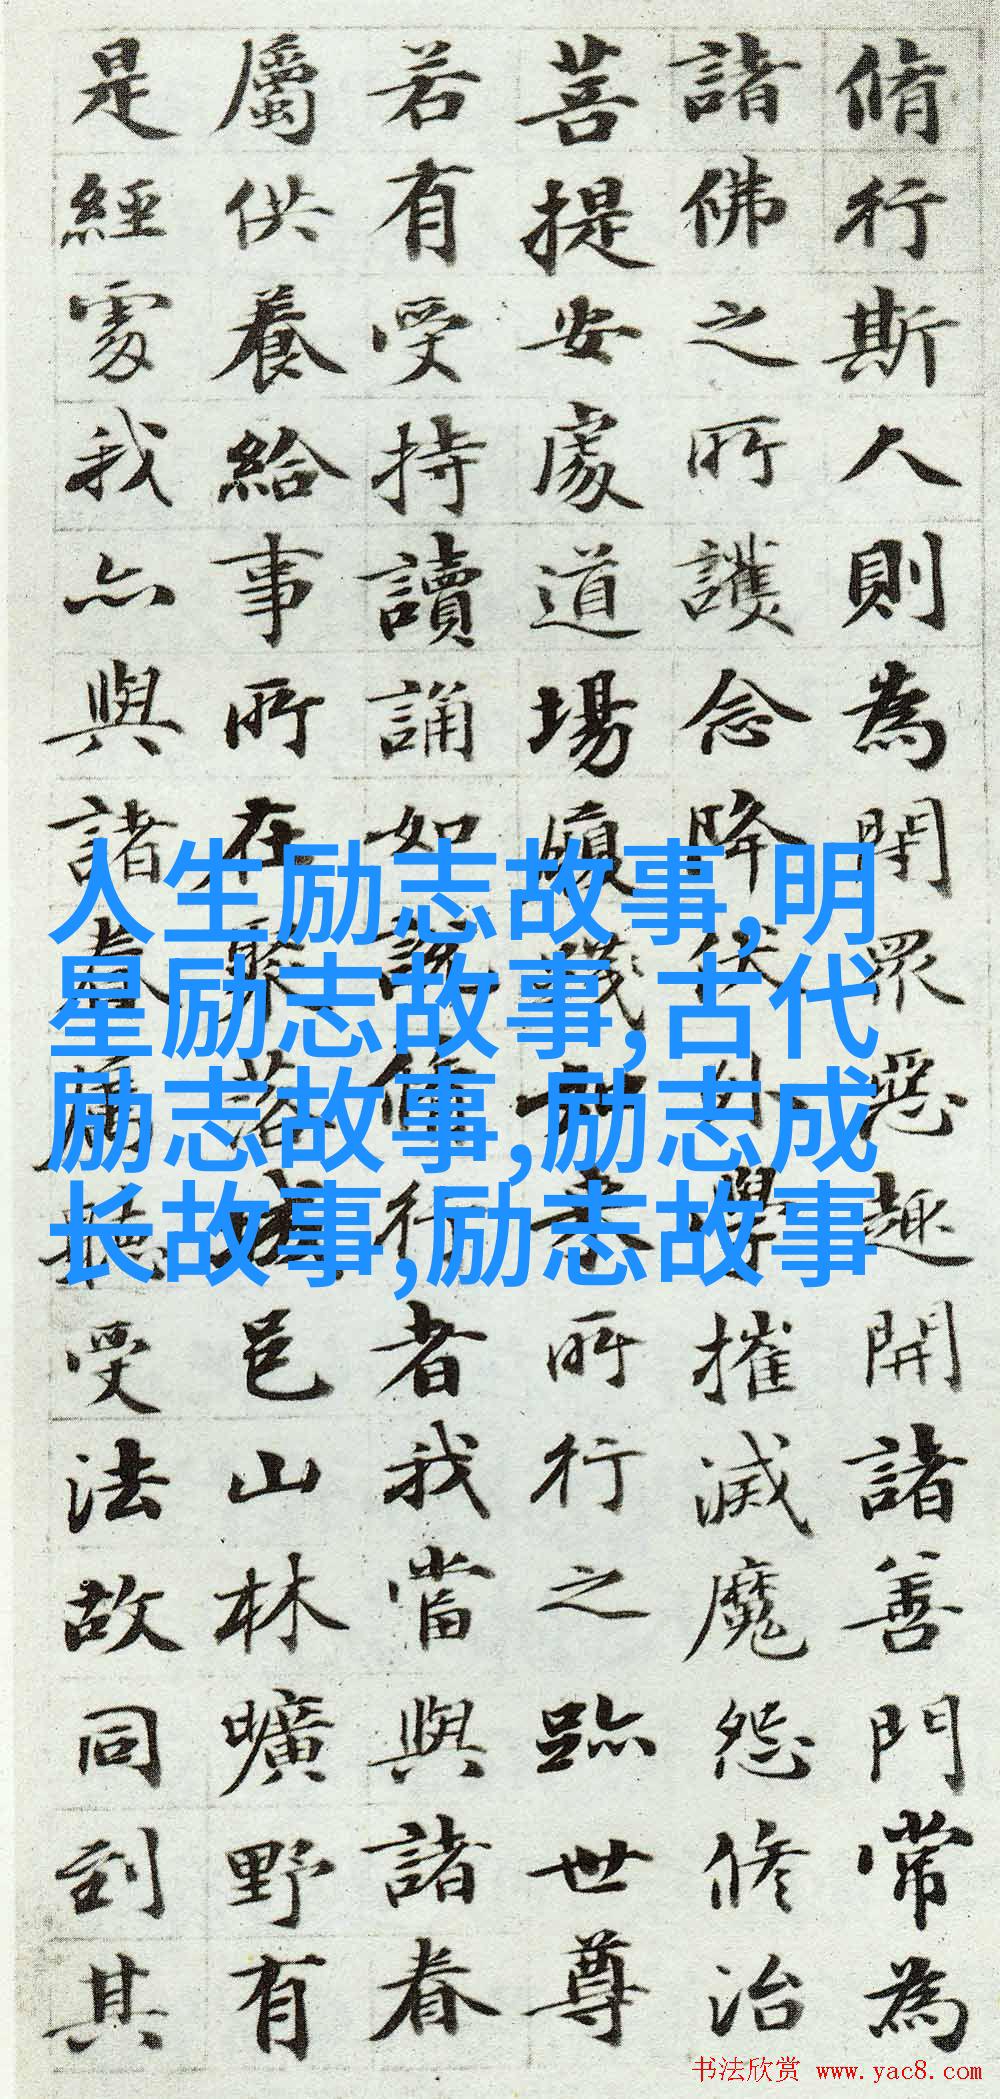 脩行斯人則為閇眾惡趣開諸善門常為
諸佛之所護念降伏外學摧滅魔怨修治
菩提安處道場踐如來所行之跡世尊
若有受持讀誦如說脩行者我當與諸眷
屬供養給事所在聚落城邑山林曠野有
是經處我亦與諸眷屬聽受法故同到其
人生励志故事,明
星励志故事,古代
励志故事,励志成
长故事,励志故事
书法欣赏 www.yac8.com